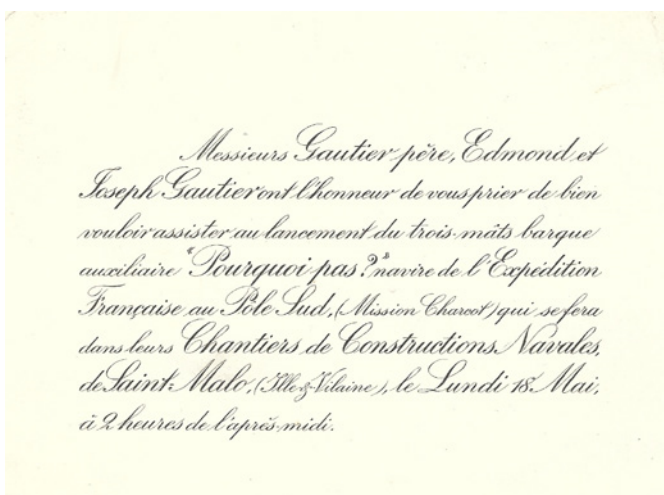 Messieurs Gautier père, Edmond et
Joseph Gautier ont l'honneur de vous prier de bien
vouloir assister au lancement du trois-mâts barque
auxiliaire "Pourquoi pas?" navire de l'Expédition
Française au Pôle Sud, (Mission Charcot) qui se fera
dans leurs Chantiers de Constructions Navales,
de Saint-Malo, (Ille & Vilaine), le Lundi 18 Mai,
à 2 heures de l'après-midi.